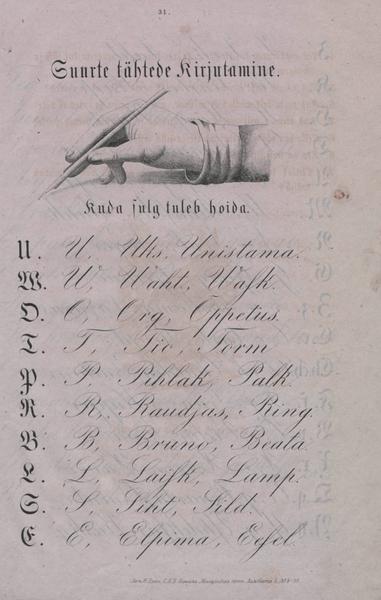 31.
Suurte tähtede Kirjutamine.
Kuda sulg tuleb hoida.
U. U, Uks, Unistama.
W. W, Waht, Wask.
O. O, Org, Oppetus.
T. T, Tio, Torm
P. P, Pihlak, Palk.
R. R, Raudjas, Ring.
B. B, Bruno, Beata
L. L, Laisk, Lamp.
S. S, Siht, Sild.
E. E, Elpima, Eesel.